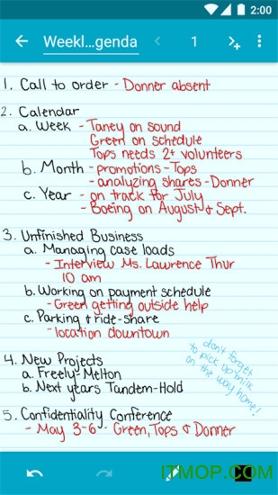 2:00
Weekl...genda
1
1. Call to order - Donner absent
2. Calendar
a. Week - Taney on sound
Green on schedule
Tops needs 2+ volunteers
b. Month - promotions - Tops
- analyzing shares - Donner
c. Year - on track for July
- Boeing on August & Sept.
3. Unfinished Business
a. Managing case loads
- Interview Ms. Lawrence Thur
10 am
b. Working on payment schedule
- Green getting outside help
c. Parking & ride-share
- location downtown
don't forget
to pick up milk
on the way home!
4. New Projects
a. Freely-Melton
b. Next years Tandem-Hold
5. Confidentiality Conference
- May 3-6 - Green, Tops & Donner
ITMOP.COM